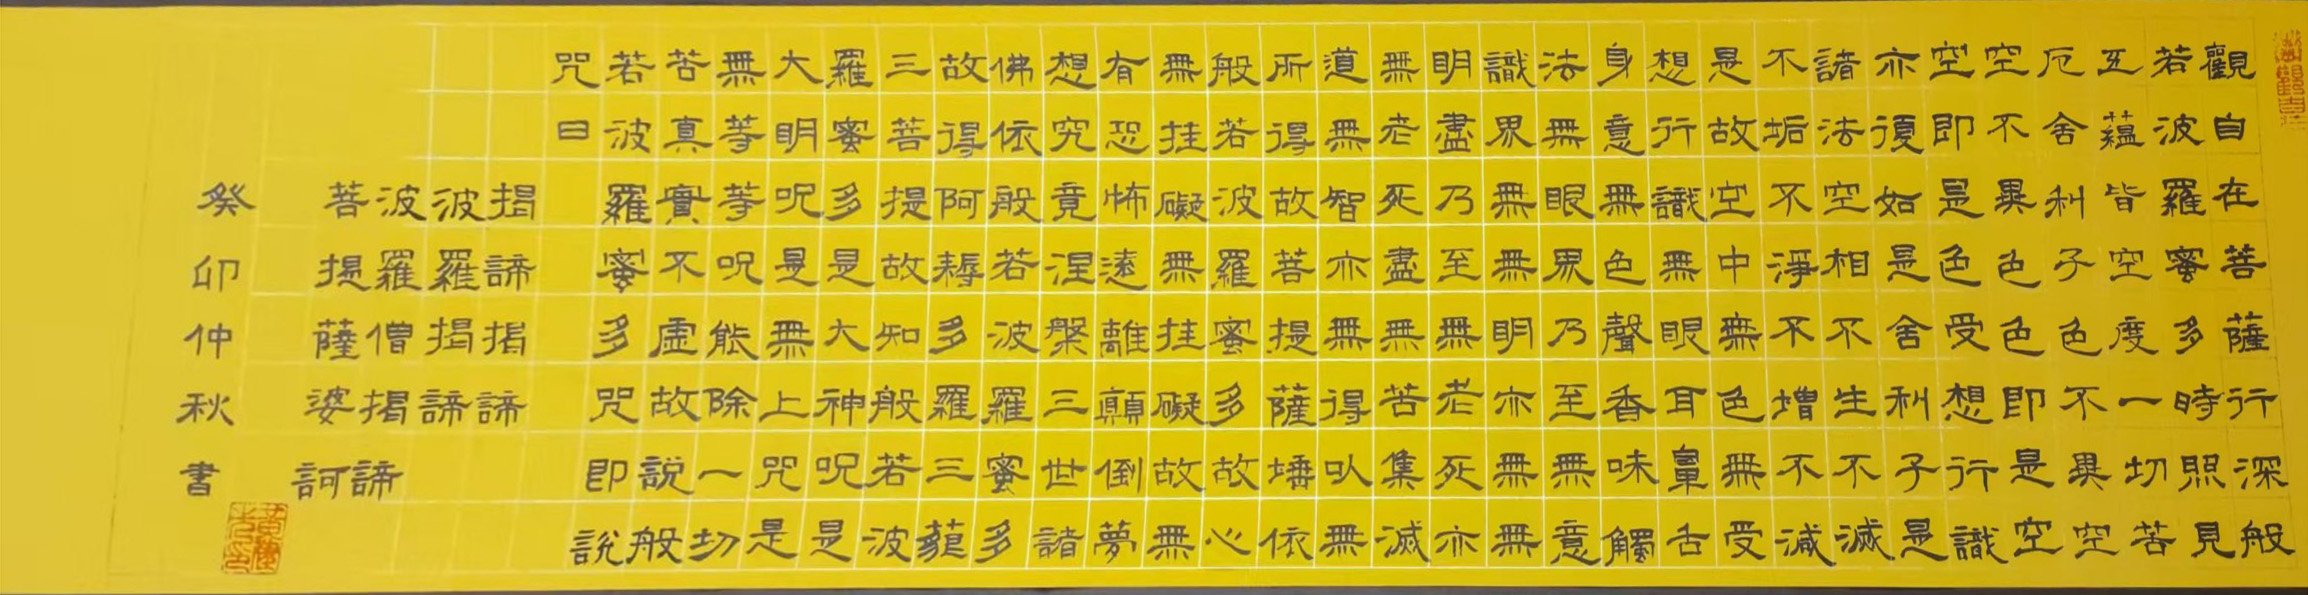 觀自在菩薩行深般
若波羅蜜多時照見
五蘊皆空度一切苦
厄舍利子色不異空
空不異色色即是空
空即是色受想行識
亦復如是舍利子是
諸法空相不生不滅
不垢不淨不增不減
是故空中無色無受
想行識無眼耳鼻舌
身意無色聲香味觸
法無眼界乃至無意
識界無無明亦無無
明盡乃至無老死亦
無老死盡無苦集滅
道無智亦無得以無
所得故菩提薩埵依
般若波羅蜜多故心
無挂礙無挂礙故無
有恐怖遠離顛倒夢
想究竟涅槃三世諸
佛依般若波羅蜜多
故得阿耨多羅三藐
三菩提故知般若波
羅蜜多是大神呪是
大明呪是無上咒是
無等等呪能除一切
苦真實不虛故說般
若波羅蜜多咒即說
咒曰
揭諦揭諦
波羅揭諦
波羅僧揭諦
菩提薩婆訶
癸卯仲秋書